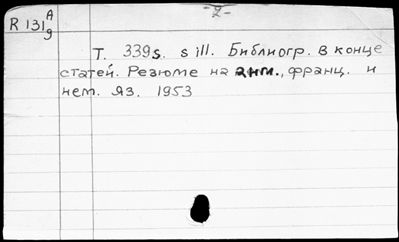 -2-
R 131 A/g
T. 339s. s ill. Библиогр. в конце
статей. Резюме на англ., франц. и
нем. яз. 1953